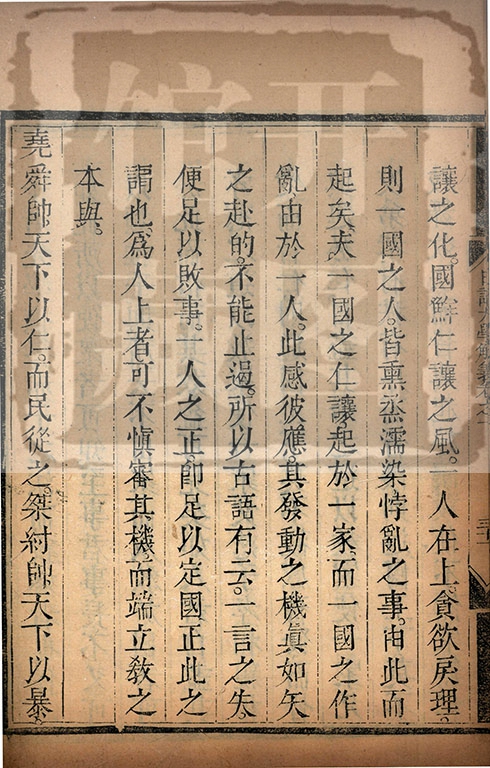 讓之化。國鮮仁讓之風。一人在上。貪欲戾理。
則一國之人。皆熏烝濡染悖亂之事。由此而
起矣。夫一國之仁讓。起於一家。而一國之作
亂由於一人。此感彼應。其發動之機。眞如矢
之赴的。不能止遏。所以古語有云。一言之失。
便足以敗事。一人之正。卽足以定國。正此之
謂也。爲人上者可不愼審其機。而端立敎之
本與。
堯舜帥天下以仁。而民從之。桀紂帥天下以暴。